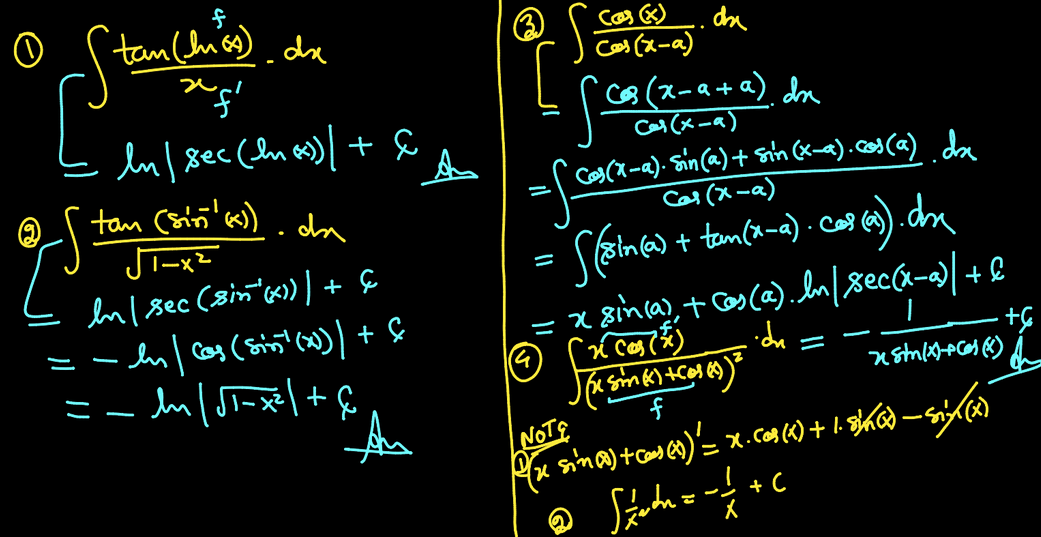 ① ∫ tan(ln(x))/x . dx
f
f'
= ln|sec(ln(x))| + C Ans
② ∫ tan(sin⁻¹(x))/√(1-x²) . dx
= ln|sec(sin⁻¹(x))| + C
= - ln|cos(sin⁻¹(x))| + C
= - ln|√(1-x²)| + C
Ans
③ ∫ cos(x)/cos(x-a) . dx
= ∫ cos(x-a+a)/cos(x-a) . dx
= ∫ (cos(x-a).sin(a) + sin(x-a).cos(a))/cos(x-a) . dx
= ∫(sin(a) + tan(x-a).cos(a)).dx
= x sin(a) + cos(a).ln|sec(x-a)| + C
④ ∫ x cos(x)/(x sin(x)+cos(x))² . dx = - 1/(x sin(x)+cos(x)) + C Ans
f'
f
NOTE
① (x sin(x)+cos(x))' = x.cos(x) + 1.sin(x) - sin(x)
② ∫ 1/x² dx = - 1/x + C